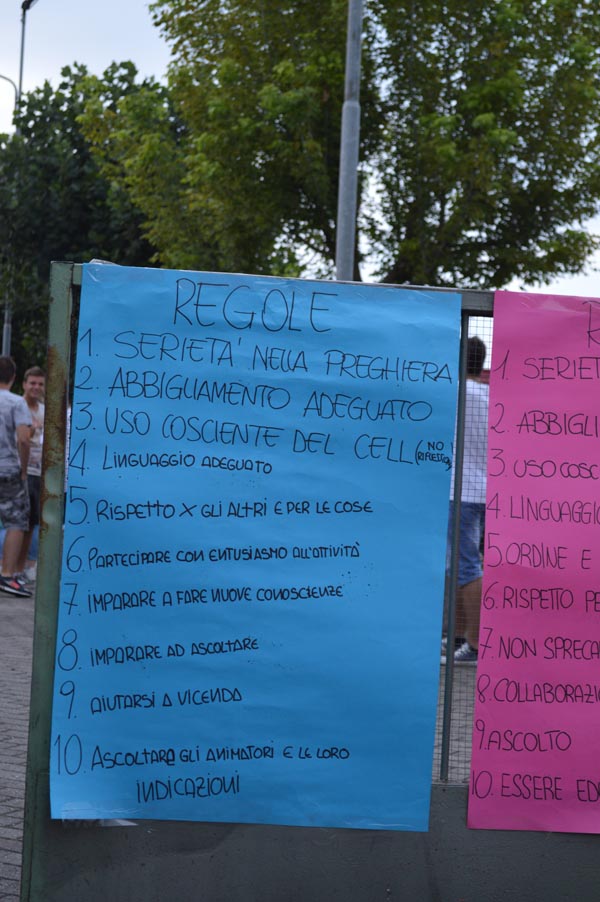 REGOLE
1. SERIETA' NELLA PREGHIERA
2. ABBIGLIAMENTO ADEGUATO
3. USO COSCIENTE DEL CELL (NO
RIFLESSIO)
4. LINGUAGGIO ADEGUATO
5. RISPETTO X GLI ALTRI E PER LE COSE
6. PARTECIPARE CON ENTUSIASMO ALL'ATTIVITÀ
7. IMPARARE A FARE NUOVE CONOSCIENZE
8. IMPARARE AD ASCOLTARE
9. AIUTARSI A VICENDA
10. ASCOLTARE GLI ANIMATORI E LE LORO
INDICAZIONI
R
1. SERIET
2. ABBIGLI
3. USO COSC
4. LINGUAGGIO
5. ORDINE E
6. RISPETTO PE
7. NON SPRECA
8. COLLABORAZI
9. ASCOLTO
10. ESSERE EDU